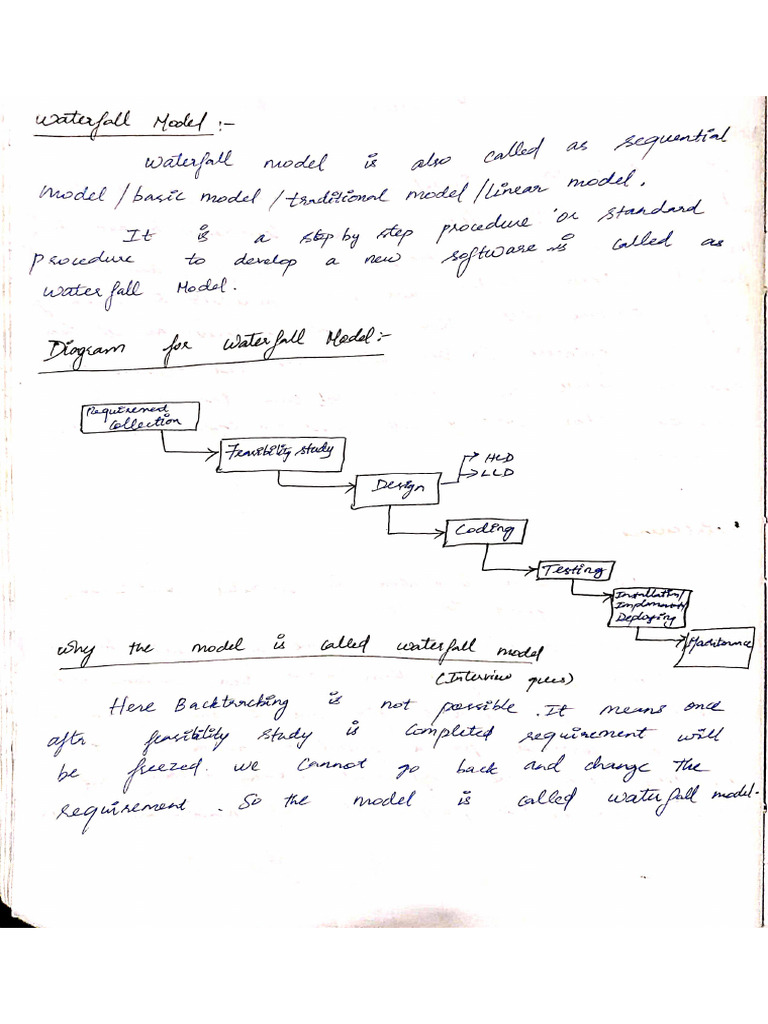 Waterfall Model :-
Waterfall model is also called as sequential
model / basic model / traditional model / linear model.
It is a step by step procedure or standard
procedure to develop a new software is called as
waterfall Model.
Diagram for waterfall Model:-
Requirement
Collection
Feasibility study
HLD
LLD
Design
Coding
Testing
Installation/
Deploying
why the model is called waterfall model
(Interview ques)
Here Backtracking is not possible. It means once
after feasibility study is completed requirement will
be freezed. we cannot go back and change the
requirement. So the model is called waterfall model.